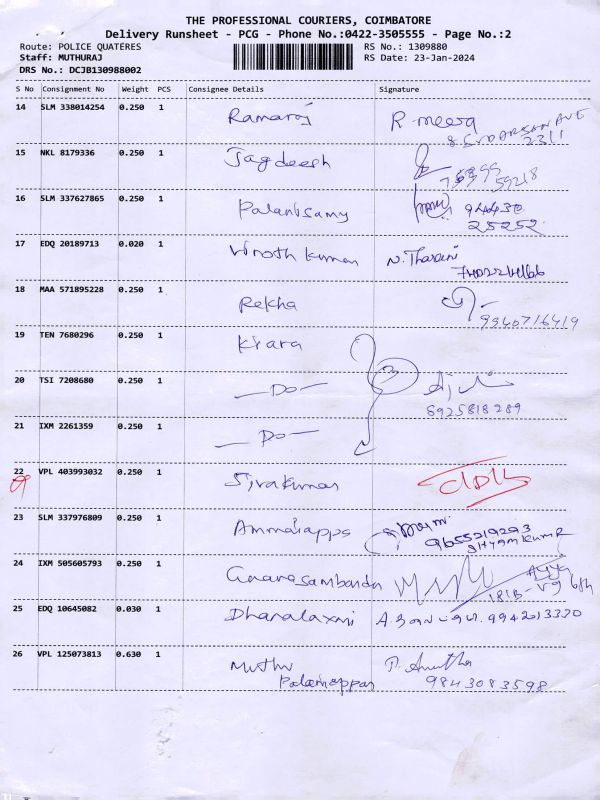 THE PROFESSIONAL COURIERS, COIMBATORE
Delivery Runsheet - PCG - Phone No.:0422-3505555 - Page No.:2
Route: POLICE QUATERES RS No.: 1309880
Staff: MUTHURAJ RS Date: 23-Jan-2024
DRS No.: DCJB130988002
S No Consignment No Weight PCS Consignee Details Signature
14 SLM 338014254 0.250 1 Ramaraj R. meera
2311
15 NKL 8179336 0.250 1 Jagdeesh
59218
16 SLM 337627865 0.250 1 Palanisamy 94430
25252
17 EDQ 20189713 0.020 1 Vinoth kumar N. Tharani
18 MAA 571895228 0.250 1 Rekha
9940716419
19 TEN 7680296 0.250 1 Kiara
20 TSI 7208680 0.250 1 —Do— 3
8925818289
21 IXM 2261359 0.250 1 —Do—
22 VPL 403993032 0.250 1 Sivakumar
23 SLM 337976809 0.250 1 Ammaiappa
9655219293
SHYAMKUMAR
24 IXM 505605793 0.250 1 Gnanasambanda
25 EDQ 10645082 0.030 1 Dhanalaxmi 9942013330
26 VPL 125073813 0.630 1 Muthu P. Amutha
Palaniappan 9843083598